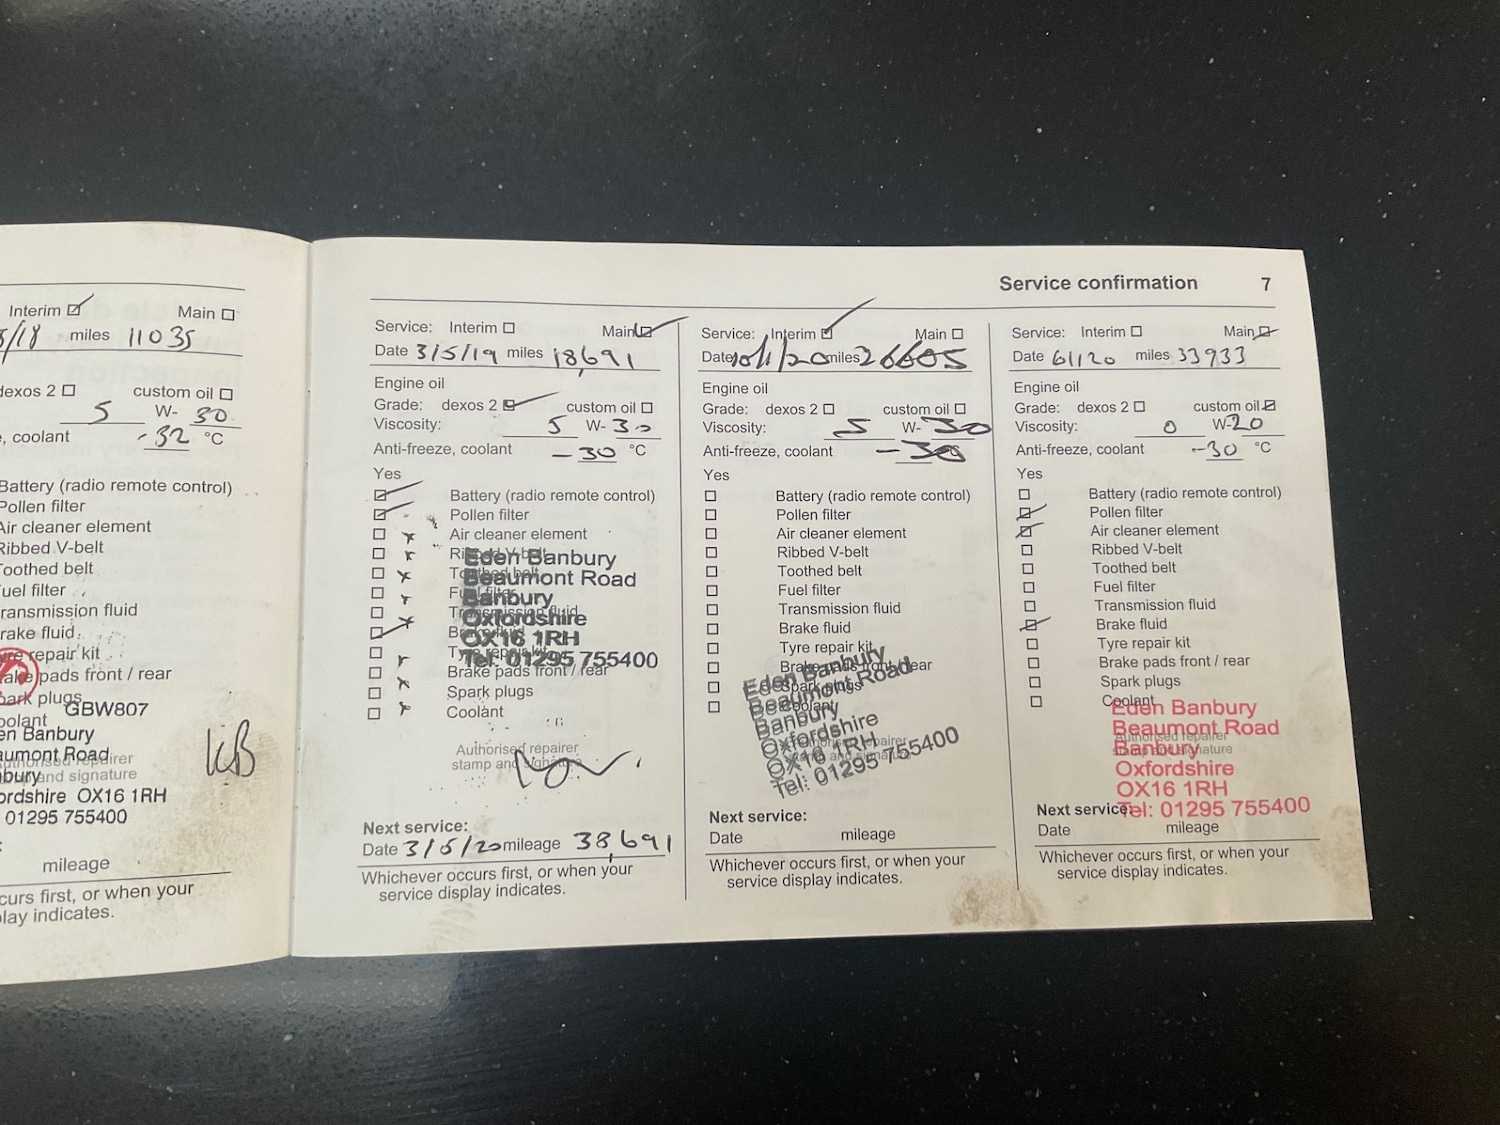 Interim Main
/18 miles 11035
dexos 2 custom oil
5 W- 30
, coolant -32 °C
Battery (radio remote control)
Pollen filter
Air cleaner element
Ribbed V-belt
Toothed belt
uel filter
ransmission fluid
rake fluid
yre repair kit
ake pads front / rear
park plugs
GBW807
oolant
en Banbury
aumont Road
uthorised repairer
nbury
p and signature
ordshire OX16 1RH
01295 755400
KB
mileage
curs first, or when your
lay indicates.
Service confirmation 7
Service: Interim Main
Date 3/5/19 miles 18,691
Engine oil
Grade: dexos 2 custom oil
Viscosity: 5 W- 30
Anti-freeze, coolant -30 °C
Yes
Battery (radio remote control)
Pollen filter
Air cleaner element
Ribbed V-belt
Toothed belt
Fuel filter
Transmission fluid
Brake fluid
Tyre repair kit
Brake pads front / rear
Spark plugs
Coolant
Eden Banbury
Beaumont Road
Banbury
Oxfordshire
OX16 1RH
Tel: 01295 755400
Authorised repairer
stamp and signature
Next service:
Date 3/5/20 mileage 38,691
Whichever occurs first, or when your
service display indicates.
Service: Interim Main
Date 10/1/20 miles 26605
Engine oil
Grade: dexos 2 custom oil
Viscosity: 5 W- 30
Anti-freeze, coolant -30
Yes
Battery (radio remote control)
Pollen filter
Air cleaner element
Ribbed V-belt
Toothed belt
Fuel filter
Transmission fluid
Brake fluid
Tyre repair kit
Brake pads front / rear
Spark plugs
Coolant
Eden Banbury
Beaumont Road
Banbury
Oxfordshire
OX16 1RH
Tel: 01295 755400
Authorised repairer
stamp and signature
Next service:
Date mileage
Whichever occurs first, or when your
service display indicates.
Service: Interim Main
Date 61120 miles 33933
Engine oil
Grade: dexos 2 custom oil
Viscosity: 0 W-20
Anti-freeze, coolant -30 °C
Yes
Battery (radio remote control)
Pollen filter
Air cleaner element
Ribbed V-belt
Toothed belt
Fuel filter
Transmission fluid
Brake fluid
Tyre repair kit
Brake pads front / rear
Spark plugs
Coolant
Eden Banbury
Beaumont Road
Authorised repairer
Banbury
stamp and signature
Oxfordshire
OX16 1RH
Next service:
Tel: 01295 755400
Date mileage
Whichever occurs first, or when your
service display indicates.